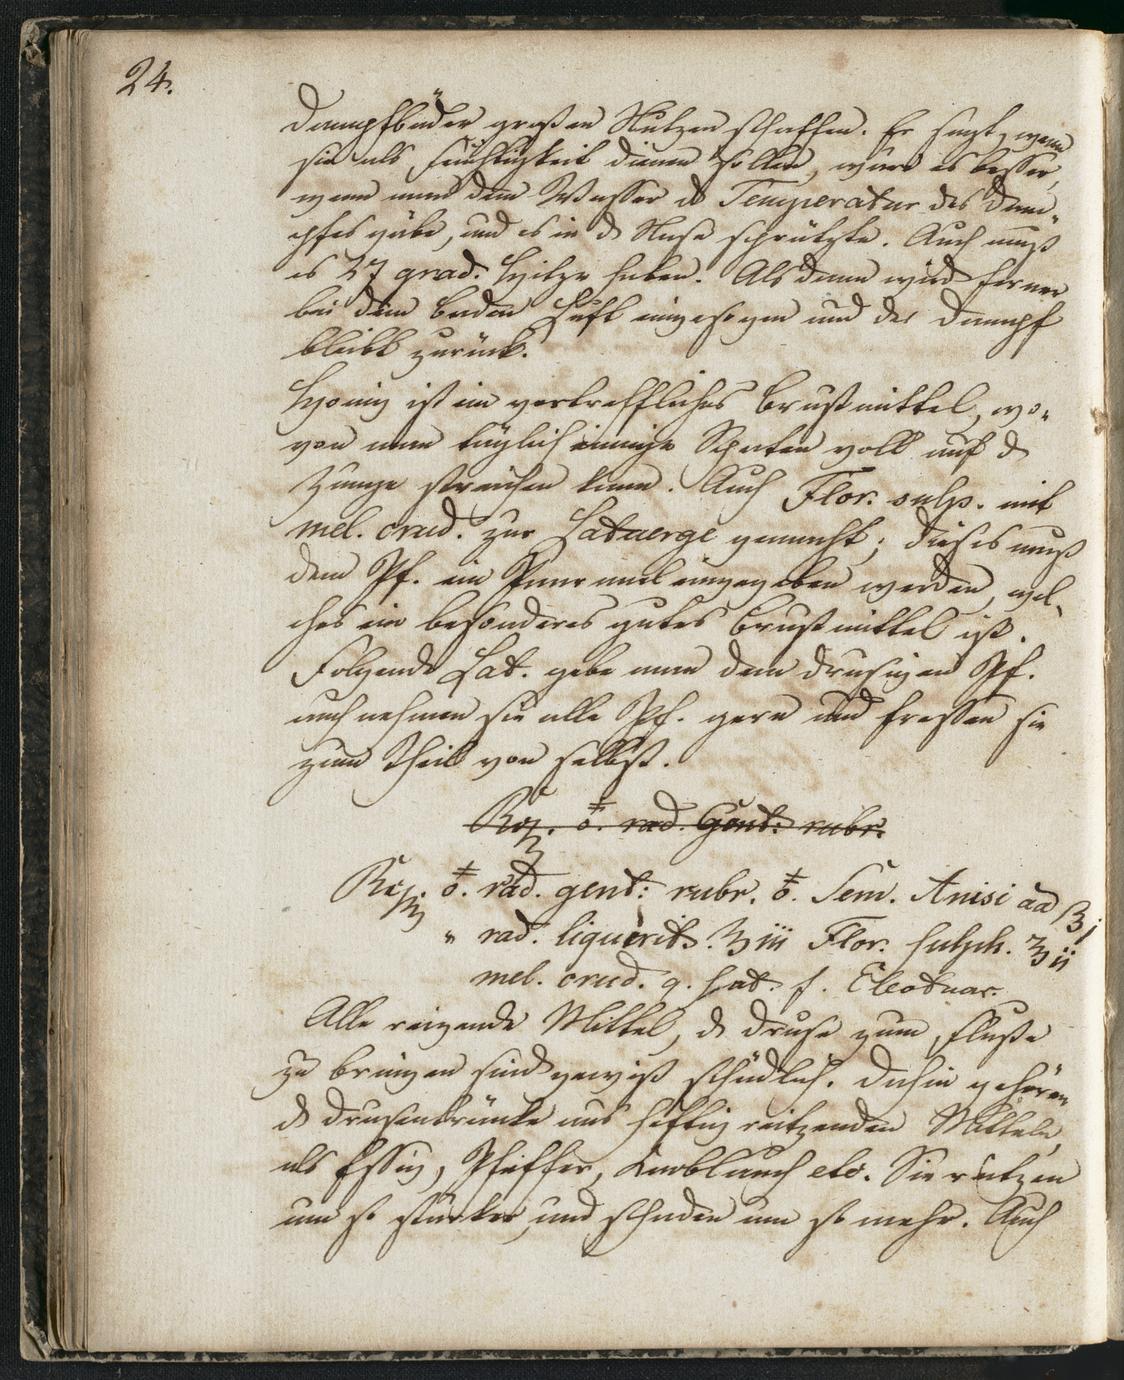 24.
Dampfbäder großen Nutzen schaffen. Er sagt, wenn
sie als Feuchtigkeit dienen sollen, wäre es besser,
wenn man dem Wasser d Temperatur des Dam-
pfes gäbe, und es in d Nase sprützte. Auch muß
es 27 grad. Hitze haben. Als dann wird ferner
bei dem Baden Luft eingesogen und der Dampf
bleibt zurück.
Honig ist ein vortreffliches Brustmittel, wo-
von man täglich einige Spaten voll auf d
Zunge streichen kann. Auch Flor. sulp. mit
mel. crud. zur Latwerge gemacht; dieses muß
dem Pf. ein Paar mal eingegeben werden, wel-
ches ein besonderes gutes Brustmittel ist.
Folgende Lat. gebe man dem drusigen Pf.
auch nehmen sie alle Pf. gern und fressen sie
zum Theil von selbst.
Rcp. rad. Gent: rubr.
Rcp. rad. gent: rubr. Sem. Anisi aa ℥j
" rad. liquirit. ℥iii Flor. sulph. ℥ii
mel. crud. q. sat. f. Electuar.
Alle reizende Mittel, d Druse zum Fluße
zu bringen sind gewiß schädlich. Dahin gehören
d Drusentränke aus heftig reitzenden Mitteln,
als Essig, Pfeffer, Knoblauch etc. Sie reitzen
um so stärker, und schaden um so mehr. Auch